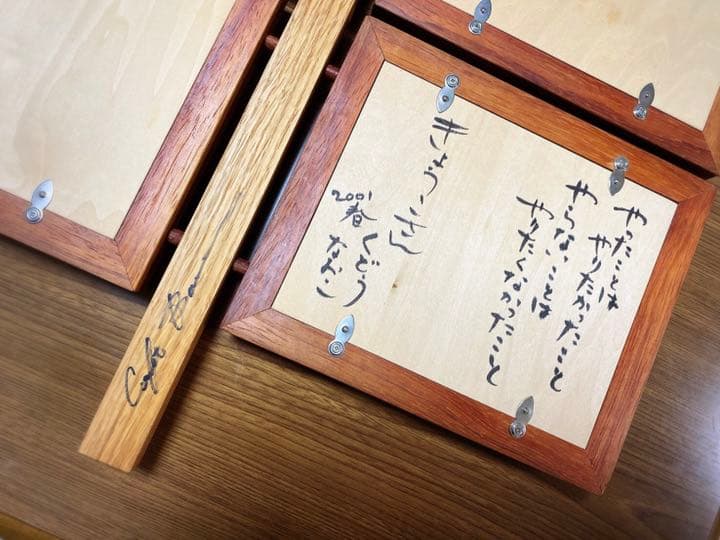 やったことは
やりたかったこと
やらないことは
やりたくなかったこと
きょうこさん
2001
春
くどう
なおこ